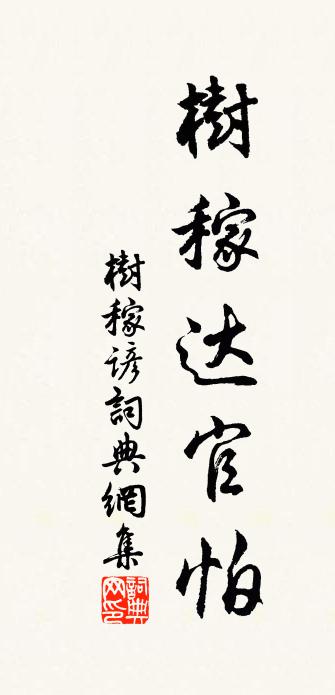 樹稼达官怕
樹稼谚詞典網集
詞典
网印